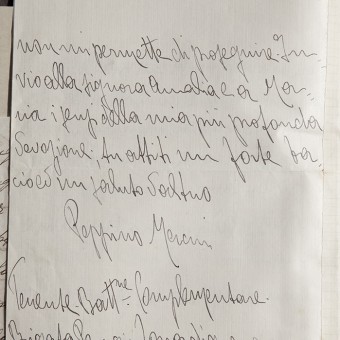 non mi permette di proseguire. In-
vio alla signora Amalia e a Mar-
ia i sensi della mia più profonda
devozione. Accetti un forte ba-
cio ed un saluto
Peppino
Tenente Batt.ne Complementare.
Brigata